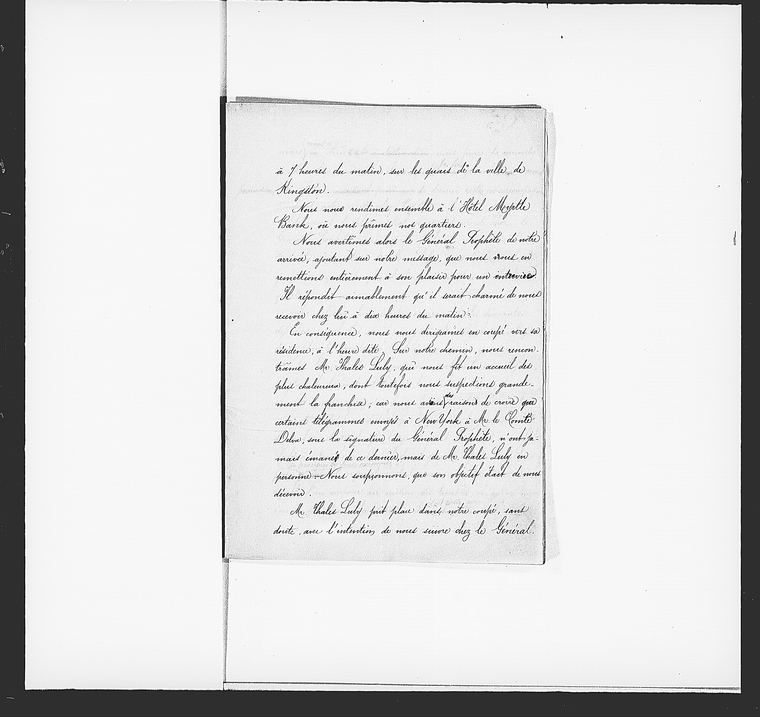 à 7 heures du matin, sur les quais de la ville de
Kingston.
Nous nous rendimes ensemble à l'Hôtel Myrtle
Bank, où nous prîmes nos quartiers.
Nous avertîmes alors le Général Prophète de notre
arrivée, ajoutant sur notre message, que nous nous en
remettions entièrement à son plaisir pour un interview
Il répondit aimablement qu'il serait charmé de nous
recevoir chez lui à dix heures du matin.
En conséquence, nous nous dirigeâmes en coupé vers sa
résidence, à l'heure dite. Sur notre chemin, nous rencon-
trâmes Mr. Thales Luly, qui nous fit un accueil des
plus chaleureux, dont toutefois nous suspections grande-
ment la franchise; car nous avions des raisons de croire que
certains télégrammes envoyés à New York à Mr. le Comte
Delva, sous la signature du Général Prophète, n'ont ja-
mais émané de ce dernier, mais de Mr. Thales Luly en
personne. Nous soupçonnons, que son objetif était de nous
décevoir.
Mr. Thales Luly prit place dans notre coupé, sans
doute, avec l'intention de nous suivre chez le Général.